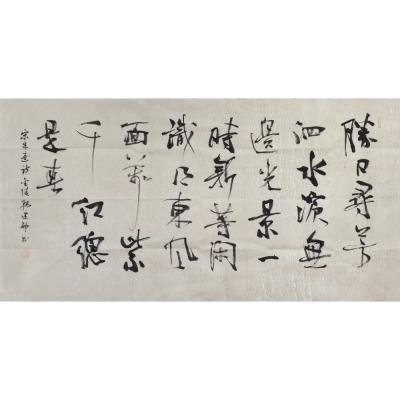 勝日尋芳
泗水濱無
邊光景一
時新等閑
識得東風
面萬紫
千紅總
是春
宋朱熹詩金陵書